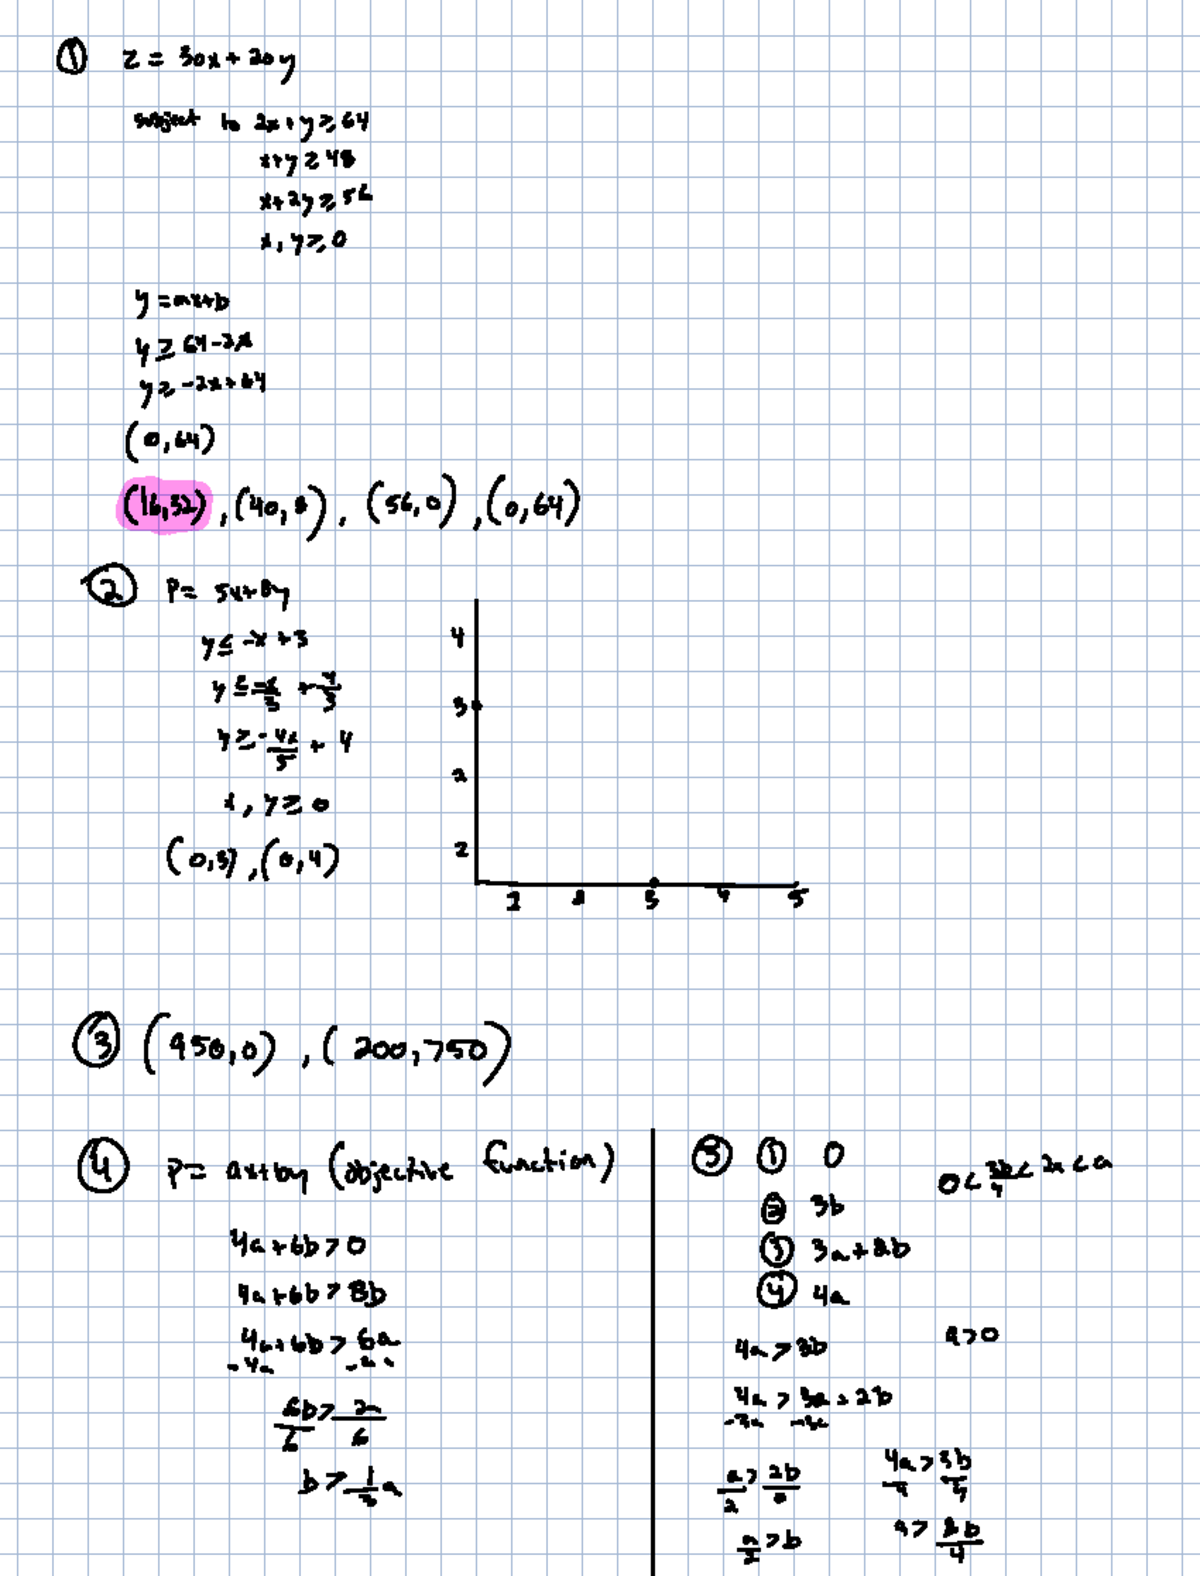 ① z = 30x + 20y
subject to 2x + y ≥ 64
x+y ≥ 48
x+2y ≥ 56
x, y ≥ 0
y = ax+b
y ≥ 64-2x
y ≥ -2x+64
(0,64)
(16,32), (40,8), (56,0), (0,64)
② P= 5x+8y
y ≤ -x +3
y ≥ -4x/5 + 4
x, y ≥ 0
(0,3), (0,4)
4
3
2
2
1 2 3 4 5
③ (950,0), (200,750)
④ P= ax+by (objective function)
4a+6b>0
4a+6b > 8b
4a+6b > 6a
-4a
6b/6 > 2a/6
b > 1/3 a
⑤ ① 0
② 3b
③ 3a+2b
④ 4a
4a > 3b
a>0
4a > 3a + 2b
-3a -3a
a/2 > 2b/2
a/2 > b
4a/4 > 3b/4